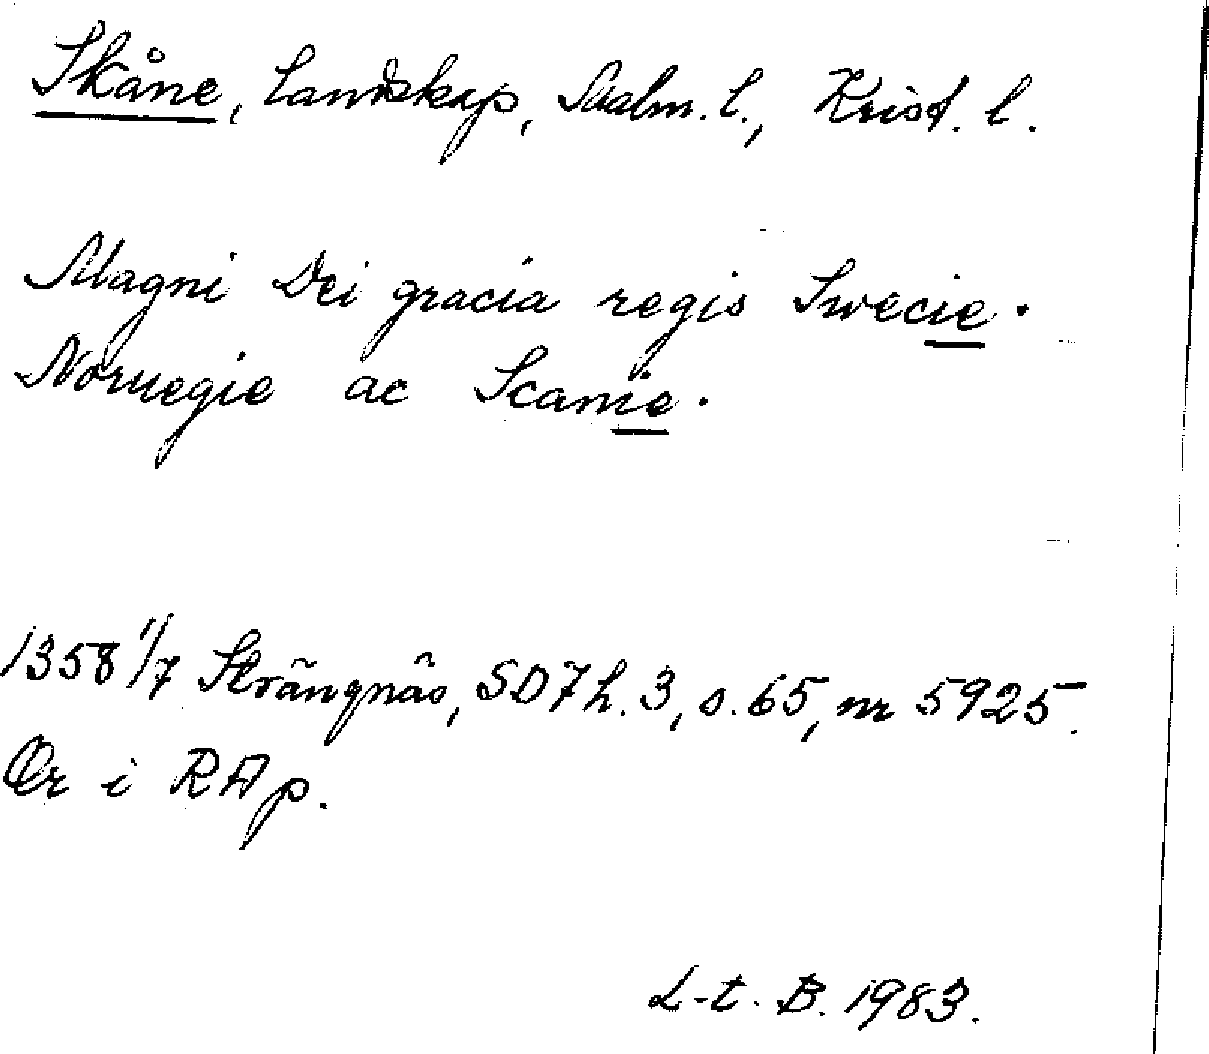 Skåne, Landskap, Malm. l., Krist. l.
Magni Dei gracia regis Swecie.
Noruegie ac Scanie.
1358 1/7 Strängnäs, SD 7 h. 3, s. 65, nr 5925.
Or i RAp.
L-t. B. 1983.